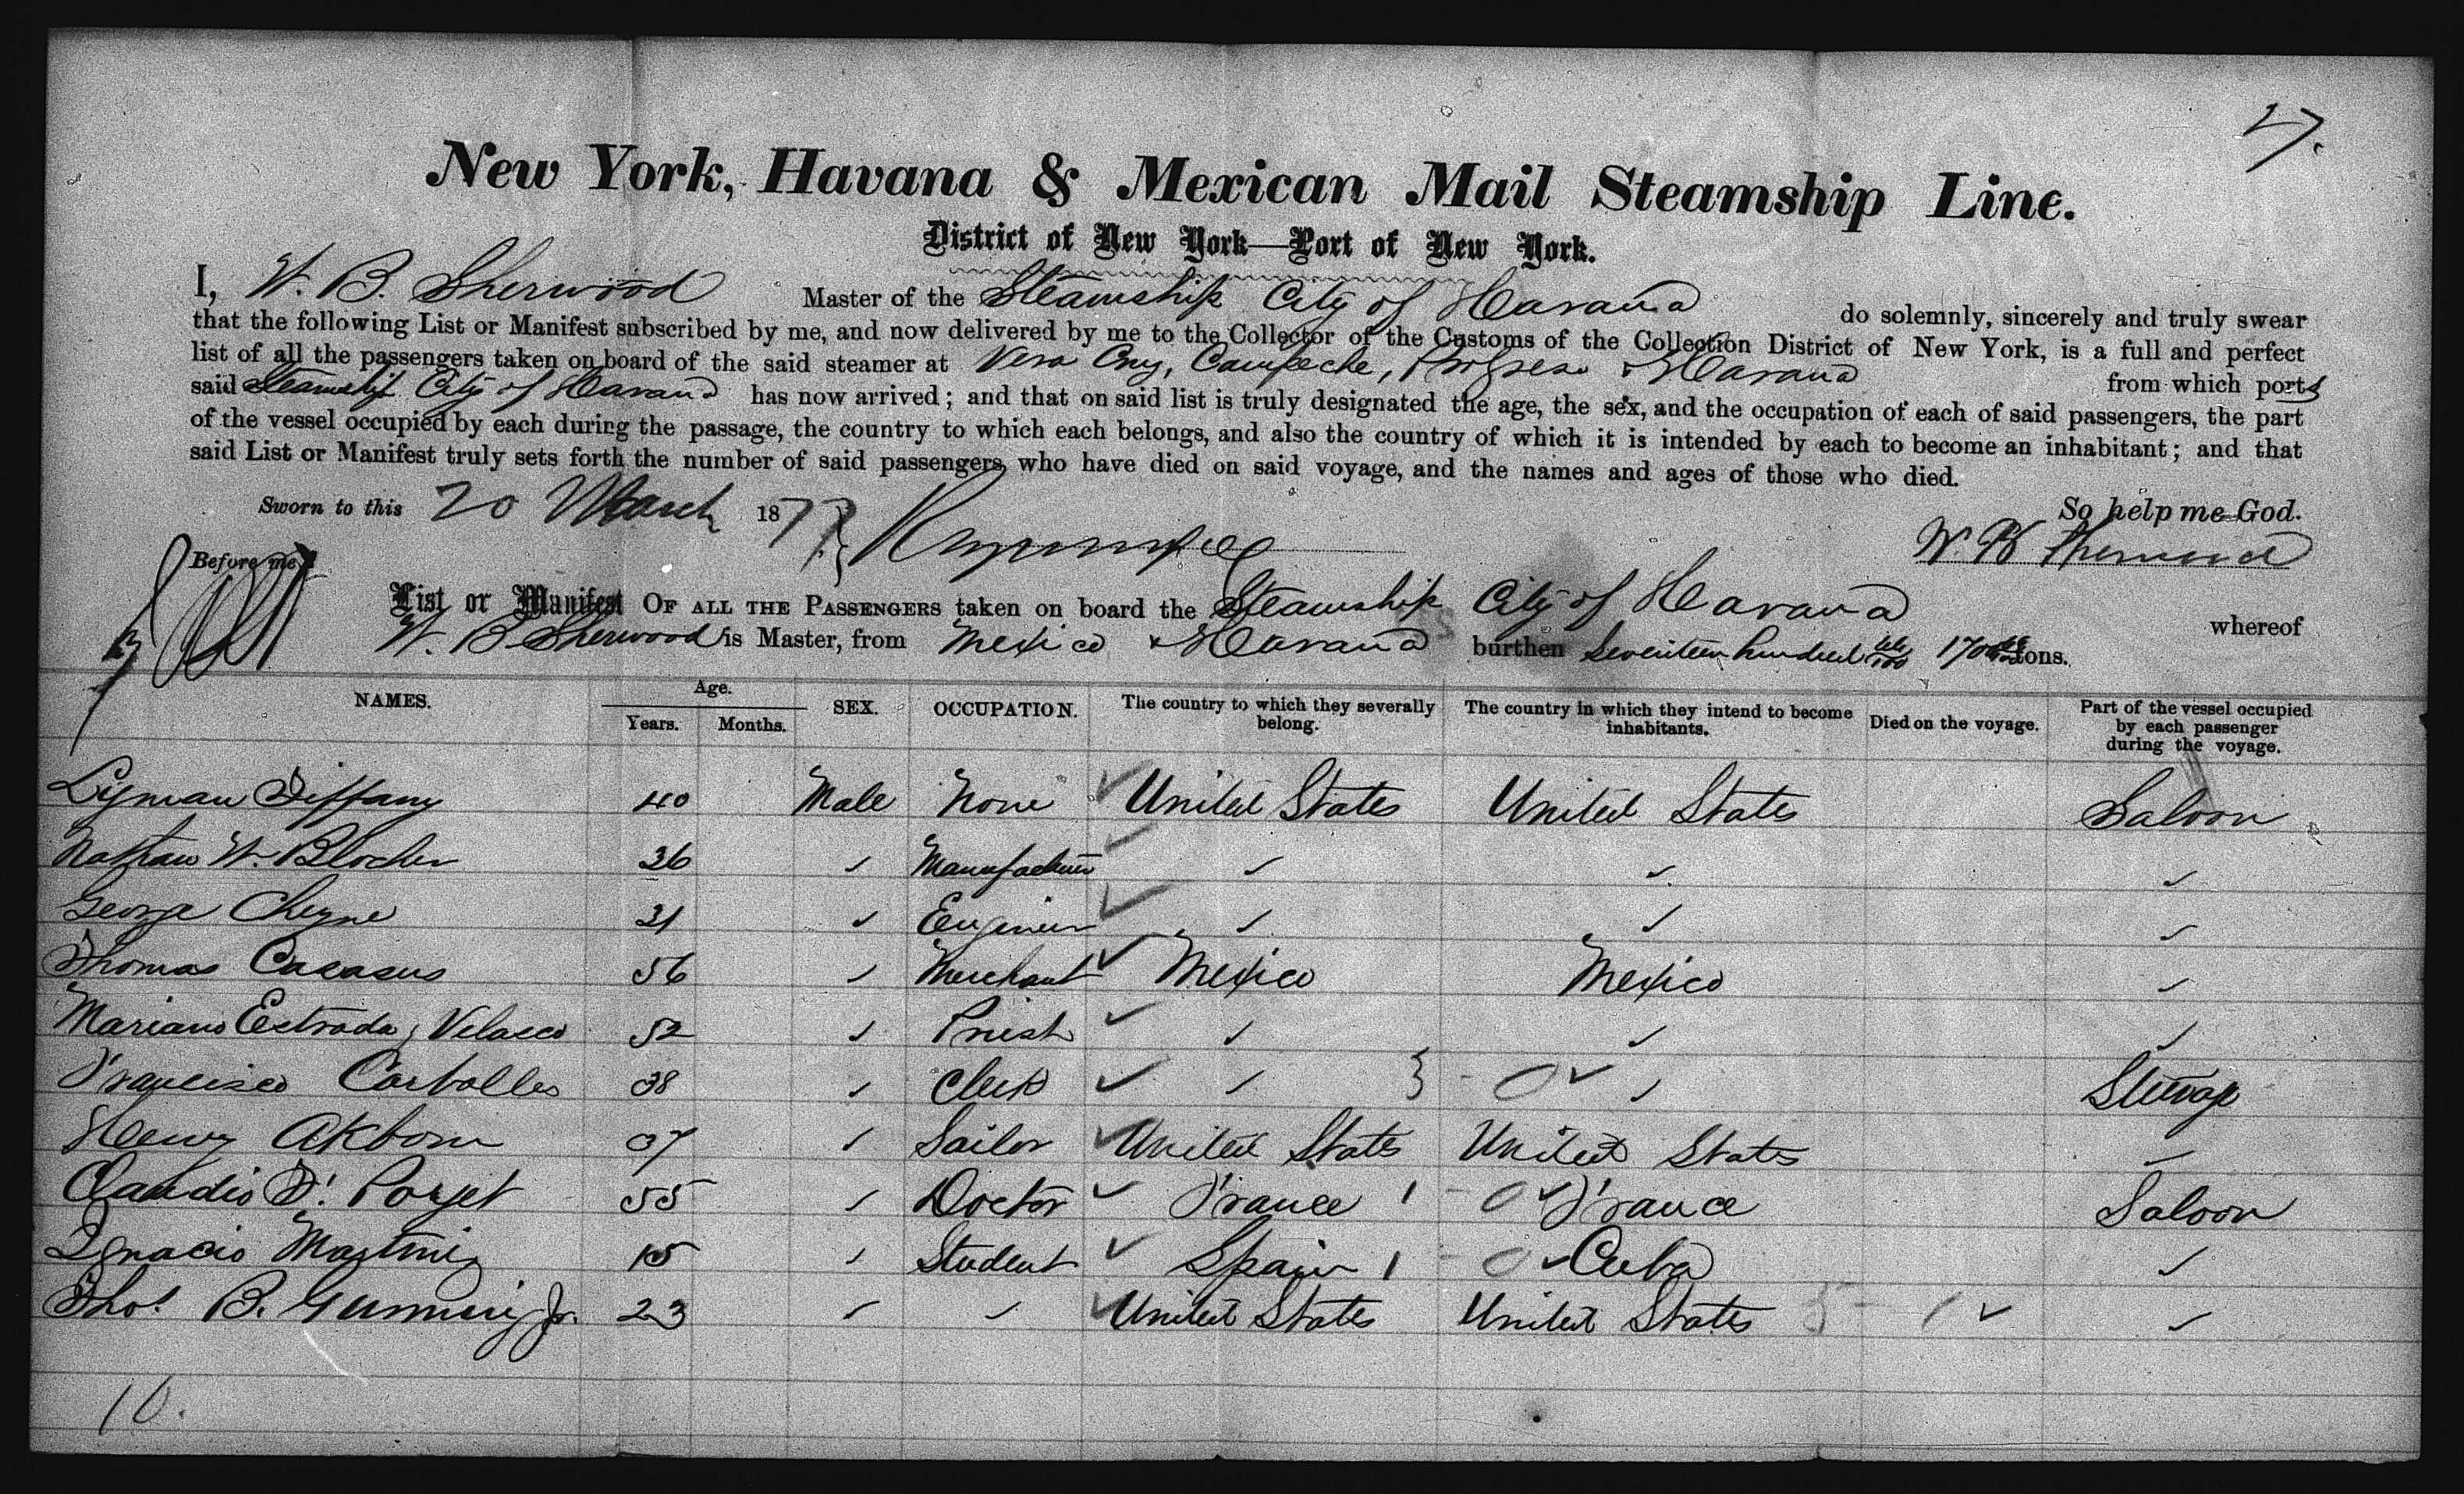 27.
New York, Havana & Mexican Mail Steamship Line.
District of New York—Port of New York.
I, W. B. Sherwood Master of the Steamship City of Havana do solemnly, sincerely and truly swear
that the following List or Manifest subscribed by me, and now delivered by me to the Collector of the Customs of the Collection District of New York, is a full and perfect
list of all the passengers taken on board of the said steamer at Vera Cruz, Campeche, Progreso & Havana from which ports
said Steamship City of Havana has now arrived; and that on said list is truly designated the age, the sex, and the occupation of each of said passengers, the part
of the vessel occupied by each during the passage, the country to which each belongs, and also the country of which it is intended by each to become an inhabitant; and that
said List or Manifest truly sets forth the number of said passengers who have died on said voyage, and the names and ages of those who died.
So help me God.
Sworn to this 20 March 1877
W. B. Sherwood
Before me
List or Manifest OF ALL THE PASSENGERS taken on board the Steamship City of Havana whereof
W. B. Sherwood is Master, from Mexico & Havana burthen Seventeen hundred tons.
NAMES. Age. Years. Months. SEX. OCCUPATION. The country to which they severally belong. The country in which they intend to become inhabitants. Died on the voyage. Part of the vessel occupied by each passenger during the voyage.
Lyman Tiffany 40 Male None United States United States Saloon
Nathan W. Blocher 36 ✓ Manufacturer ✓ ✓ ✓
George Cheyne 31 ✓ Engineer ✓ ✓ ✓
Thomas Casasus 56 ✓ Merchant Mexico Mexico ✓
Mariano Estrada y Velasco 52 ✓ Priest ✓ ✓ ✓
Francisco Carballes 38 ✓ Clerk ✓ ✓ Steerage
Henry Akborn 37 ✓ Sailor United States United States ✓
Claudio F. Poryet 55 ✓ Doctor France France Saloon
Ignacio Martinez 15 ✓ Student Spain Cuba ✓
Thos. B. Jr. 23 ✓ ✓ United States United States ✓
10.